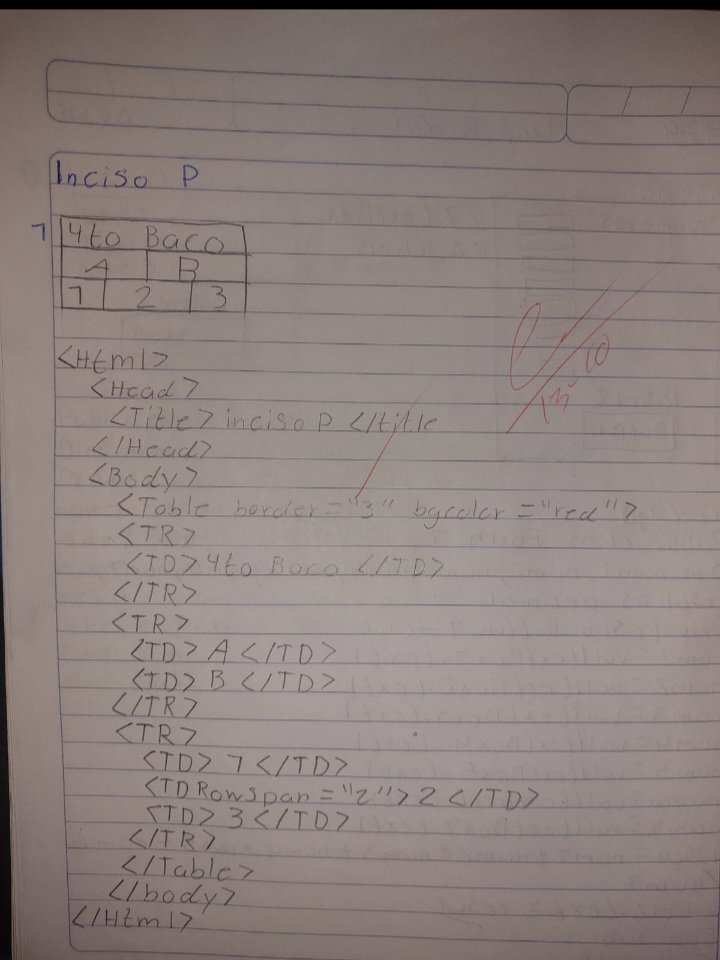 Inciso P
1 4to Baco
A B
1 2 3
13 10
<Html>
<Head>
<Title> inciso P </title
</Head>
<Body>
<Table border="3" bgcolor="red">
<TR>
<TD>4to Baco </TD>
</TR>
<TR>
<TD> A </TD>
<TD> B </TD>
</TR>
<TR>
<TD> 1 </TD>
<TD Rowspan="2">2 </TD>
<TD> 3 </TD>
</TR>
</Table>
</body>
</Html>